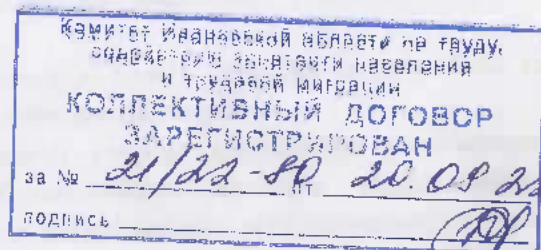 Комитет Ивановской области по труду,
содействию занятости населения
и трудовой миграции
КОЛЛЕКТИВНЫЙ ДОГОВОР
ЗАРЕГИСТРИРОВАН
за № 21/22-80 от 20.09 22
подпись